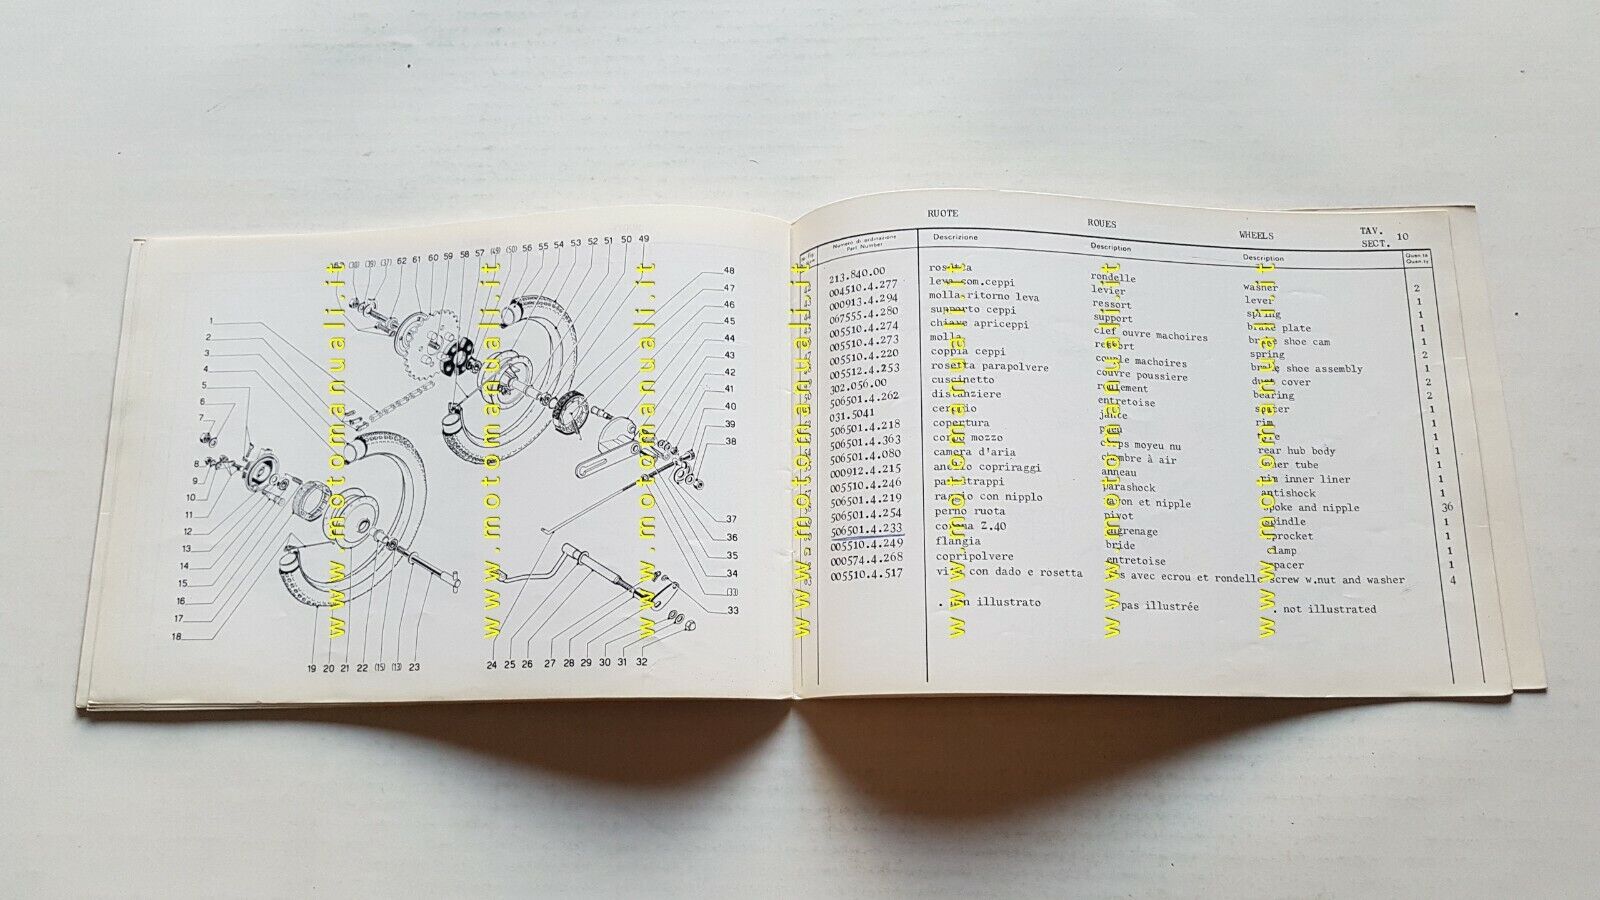 63 (38) (39) (37) 62 61 60 59 58 57 (49) (50) 56 55 54 53 52 51 50 49
48
47
46
45
44
43
42
41
40
39
38
1
2
3
4
5
6
7
8
9
10
11
12
13
14
15
16
17
18
37
36
35
34
(33)
33
19 20 21 22 (15) (13) 23
24 25 26 27 28 29 30 31 32
RUOTE ROUES WHEELS TAV. SECT. 10
Numero di ordinazione Part Number Descrizione Description Description Quan.tà Quan.ty
213.840.00 rosetta rondelle washer 2
004510.4.277 leva com.ceppi levier lever 1
000913.4.294 molla ritorno leva ressort spring 1
007555.4.280 supporto ceppi support brake plate 1
005510.4.274 chiave apriceppi clef ouvre machoires brake shoe cam 1
005510.4.273 molla ressort spring 2
005510.4.220 coppia ceppi couple machoires brake shoe assembly 1
005512.4.253 rosetta parapolvere couvre poussiere dust cover 2
302.056.00 cuscinetto roulement bearing 2
506501.4.262 distanziere entretoise spacer 1
031.5041 cerchio jante rim 1
506501.4.218 copertura pneu tyre 1
506501.4.363 corpo mozzo corps moyeu nu rear hub body 1
506501.4.080 camera d'aria chambre à air inner tube 1
000912.4.215 anello copriraggi anneau rim inner liner 1
005510.4.246 parastrappi parashock antishock 1
506501.4.219 raggio con nipplo rayon et nipple spoke and nipple 36
506501.4.254 perno ruota pivot spindle 1
506501.4.233 corona Z.40 engrenage sprocket 1
005510.4.249 flangia bride clamp 1
000574.4.268 copripolvere entretoise spacer 1
005510.4.517 vite con dado e rosetta vis avec ecrou et rondelle screw w.nut and washer 4
. non illustrato . pas illustrée . not illustrated
www.motomanuali.it
www.motomanuali.it
www.motomanuali.it
www.motomanuali.it
www.motomanuali.it
www.motomanuali.it
www.motomanuali.it